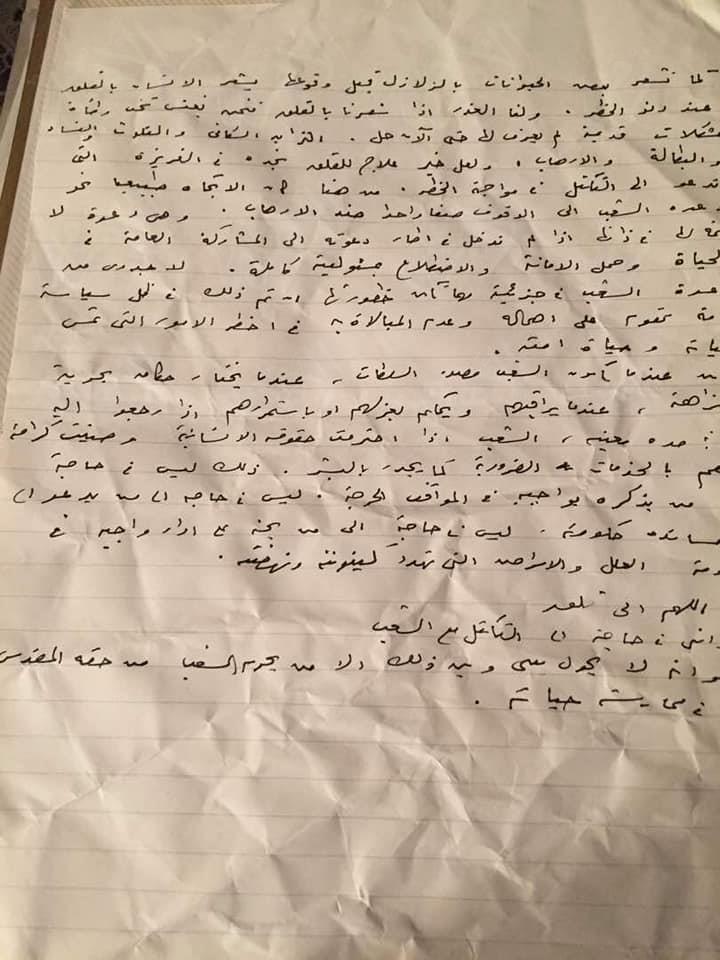 كما تشعر بعض الحيوانات بالزلازل قبل وقوعها يشعر الانسان بالقلق
عند دنو الخطر . ولنا العذر اذا شعرنا بالقلق فنحن نعيش تحت رحمة
مشكلات قديمة لم يعرف لها حتى الآن حل . التزايد السكانى والتلوث والفساد
والبطالة والارهاب ، ولعل خير علاج للقلق نجده فى الغريزة التى
تدعو الى التكاتل فى مواجهة الخطر . من هنا كان الاتجاه طبيعيا نحو
دعوة الشعب الى الوقوف صفا واحدا ضد الارهاب . وهى دعوة لا
لها فى ذاتها اذا لم تدخل فى اطار دعوته الى المشاركة العامة فى
الحياة وحمل الامانة والاضطلاع بمسئولية كاملة . لا جدوى من
دعوة الشعب فى جزئية مهما تكن خطورتها ان تم ذلك فى ظل سياسة
عامة تقوم على اهماله وعدم المبالاة به فى اخطر الامور التى تمس
حياته وحياة امته .
عندما يكون الشعب مصدر السلطات ، عندما يختار حكامه بحرية
ونزاهة ، عندما يراقبهم ويحكم بعزلهم او باستمرارهم اذا رجعوا اليه
مدة معينة ، الشعب اذا احترمت حقوقه الانسانية وصينت كرامته
بالخدمات الضرورية كما يجدر بالبشر . ذلك ليس فى حاجة
الى من يذكره بواجبه فى المواقف الحرجة . ليس فى حاجة الى من يدعو الى
مساندة حكومته . ليس فى حاجة الى من يحثه على اداء واجبه فى
العلل والامراض التى تهدد كينونته ونهضته .
اللهم انى
وانى فى حاجة الى التكاتل مع الشعب
وانه لا يحول بينى وبين ذلك الا من يحرم الشعب من حقه المقدس
فى ممارسة حياته .